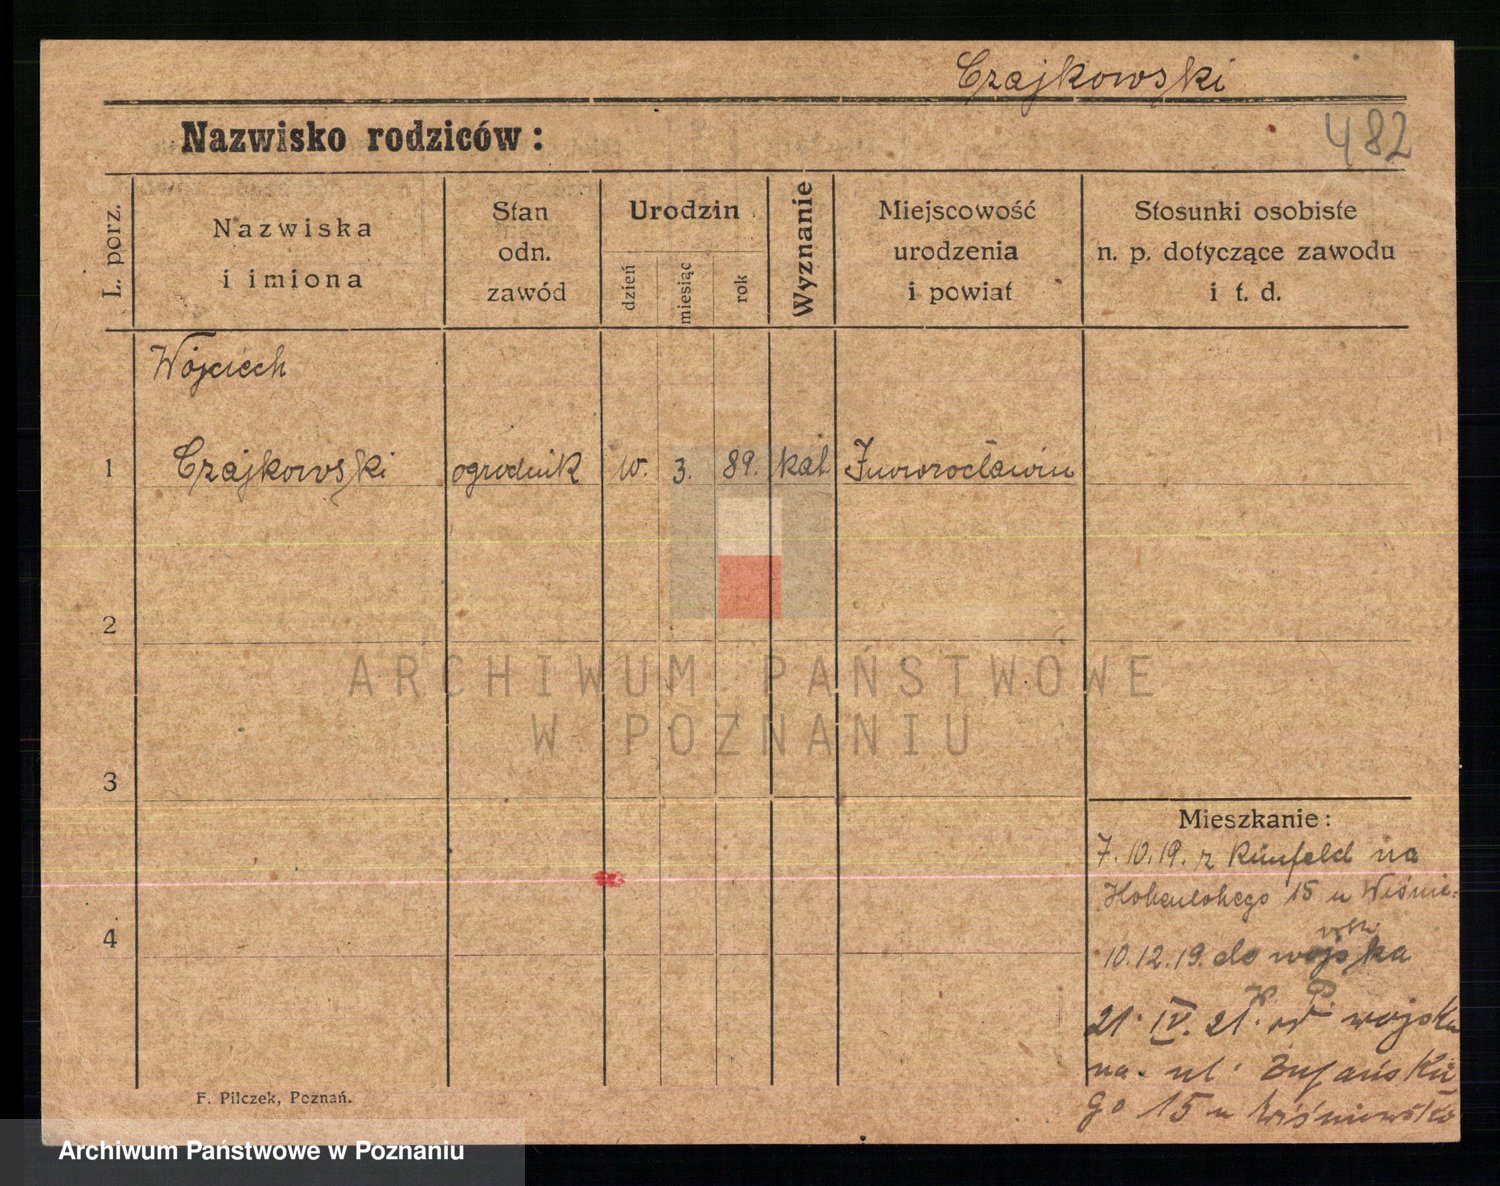 Czajkowski
Nazwisko rodziców:
482
L. porz.
Nazwiska
i imiona
Stan
odn.
zawód
Urodzin
dzień
miesiąc
rok
Wyznanie
Miejscowość
urodzenia
i powiat
Stosunki osobiste
n. p. dotyczące zawodu
i t. d.
Wojciech
1 Czajkowski ogrodnik 10. 3. 89. kat Inowrocławiu
2
ARCHIWUM PAŃSTWOWE
W POZNANIU
3
Mieszkanie:
7.10.19. z na
Hohenlohego 15 u Wiśnie-
4
10.12.19. do wojska
21. IV. 21. od wojska
na ul.
go 15 u Wiśniewski
F. Pilczek, Poznań.
Archiwum Państwowe w Poznaniu